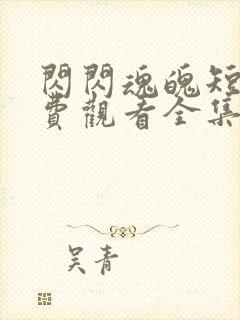 閃閃魂魄短
費觀看全集
吴青